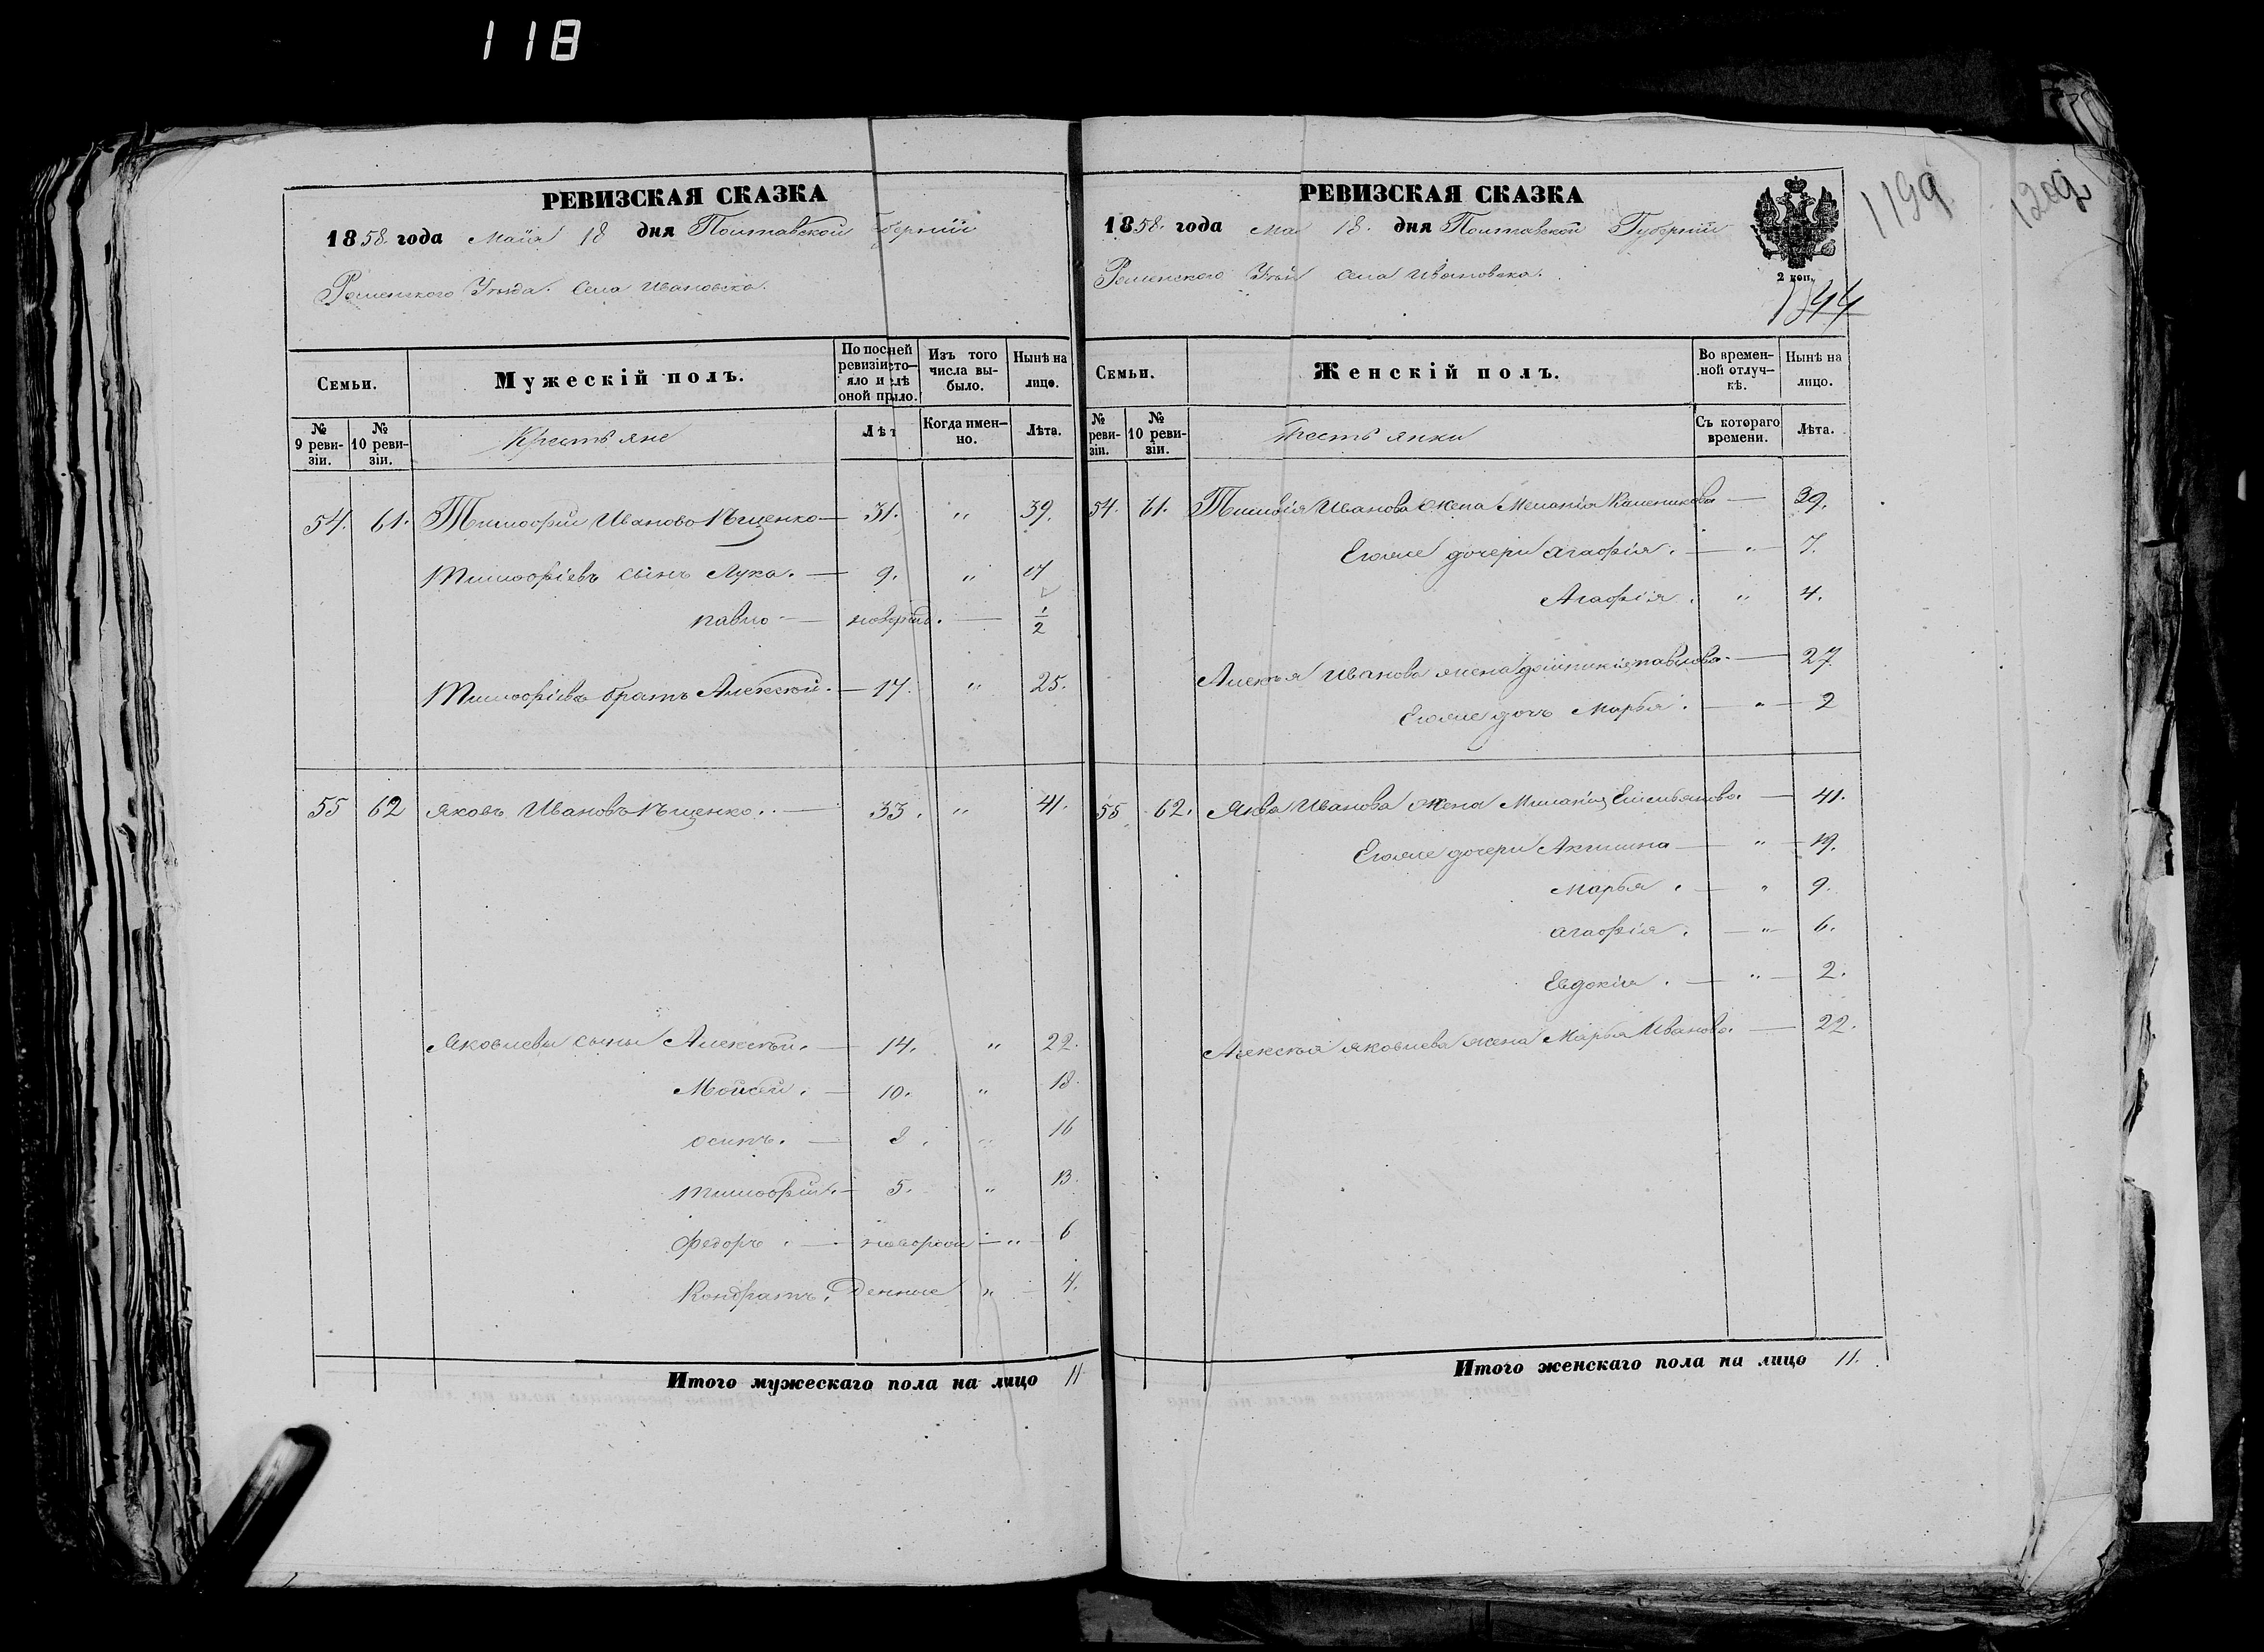 118
РЕВИЗСКАЯ СКАЗКА
1858. года Мaiя 18 дня Полтавской Губернiи
Роменского Уѣзда. Села Ивановска.
Семьи.
Мужескiй полъ.
По посней ревизiи сто-яло и слѣ оной прыло.
Изъ того числа вы-было.
Нынѣ на лицо.
№ 9 реви-зiи.
№ 10 реви-зiи.
Крестьяне
Лѣт
Когда имен-но.
Лѣта.
54. 61. Тимофiй Ивановъ Ищенко — 31. " 39.
Тимофiевъ сынъ Лука. — 9. " 17
павло — новорожд. — 1/2
Тимофiевъ братъ Алексѣй. — 17. " 25.
55 62 Яковъ Ивановъ Ищенко. — 33. " 41.
Яковлевы сыны Алексѣй. — 14. " 22.
Мойсѣй. — 10. " 18.
осипъ. — 8. " 16
Тимофiй. — 5. " 13.
Федоръ. — новорож — " — 6
Кондратъ. денные " — 4.
Итого мужескаго пола на лицо 11
РЕВИЗСКАЯ СКАЗКА
1858. года Ма 18. дня Полтавской Губернiи
Роменского Уѣзд Села Ивановска.
2 коп.
1199
1209
1344
Семьи.
Женскiй полъ.
Во времен-ной отлуч-кѣ.
Нынѣ на лицо.
№ реви-зiи.
№ 10 реви-зiи.
Крестьянки
Съ котораго времени.
Лѣта.
54. 61. Тимофiя Иванова жена Меланiя Каленикова — 39.
Егоже дочери Агафiя. — " — 7.
Агафiя. " 4.
Алексѣя Иванова жена павлова. — 27
Егоже дочь Марья. — " — 2
55 62. Якова Иванова жена Миланiя Емельянова. — 41.
Егоже дочери Акилина — " — 19.
Марья. — " 9.
Агафiя. — " — 6.
Евдокiя. — " — 2.
Алексѣя Яковлева жена Марья Иванова. — 22.
Итого женскаго пола на лицо 11.